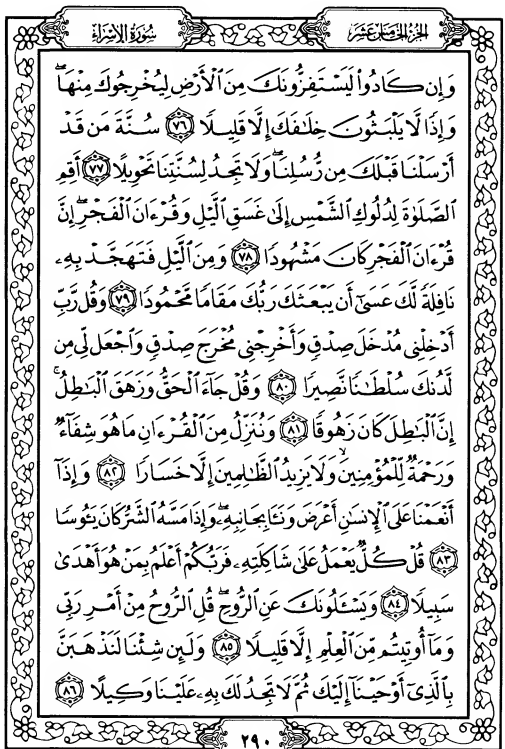 الجزء الخامس عشر
سورة الإسراء
وَإِن كَادُواْ لَيَسْتَفِزُّونَكَ مِنَ ٱلْأَرْضِ لِيُخْرِجُوكَ مِنْهَاۖ
وَإِذًا لَّا يَلْبَثُونَ خِلَٰفَكَ إِلَّا قَلِيلًا ٧٦ سُنَّةَ مَن قَدْ
أَرْسَلْنَا قَبْلَكَ مِن رُّسُلِنَاۖ وَلَا تَجِدُ لِسُنَّتِنَا تَحْوِيلًا ٧٧ أَقِمِ
ٱلصَّلَوٰةَ لِدُلُوكِ ٱلشَّمْسِ إِلَىٰ غَسَقِ ٱلَّيْلِ وَقُرْءَانَ ٱلْفَجْرِۖ إِنَّ
قُرْءَانَ ٱلْفَجْرِ كَانَ مَشْهُودًا ٧٨ وَمِنَ ٱلَّيْلِ فَتَهَجَّدْ بِهِۦ
نَافِلَةً لَّكَ عَسَىٰٓ أَن يَبْعَثَكَ رَبُّكَ مَقَامًا مَّحْمُودًا ٧٩ وَقُل رَّبِّ
أَدْخِلْنِى مُدْخَلَ صِدْقٍ وَأَخْرِجْنِى مُخْرَجَ صِدْقٍ وَٱجْعَل لِّى مِن
لَّدُنكَ سُلْطَٰنًا نَّصِيرًا ٨٠ وَقُلْ جَآءَ ٱلْحَقُّ وَزَهَقَ ٱلْبَٰطِلُۚ
إِنَّ ٱلْبَٰطِلَ كَانَ زَهُوقًا ٨١ وَنُنَزِّلُ مِنَ ٱلْقُرْءَانِ مَا هُوَ شِفَآءٌ
وَرَحْمَةٌ لِّلْمُؤْمِنِينَۙ وَلَا يَزِيدُ ٱلظَّٰلِمِينَ إِلَّا خَسَارًا ٨٢ وَإِذَآ
أَنْعَمْنَا عَلَى ٱلْإِنسَٰنِ أَعْرَضَ وَنَـَٔا بِجَانِبِهِۦۖ وَإِذَا مَسَّهُ ٱلشَّرُّ كَانَ يَـُٔوسًا
٨٣ قُلْ كُلٌّ يَعْمَلُ عَلَىٰ شَاكِلَتِهِۦ فَرَبُّكُمْ أَعْلَمُ بِمَنْ هُوَ أَهْدَىٰ
سَبِيلًا ٨٤ وَيَسْـَٔلُونَكَ عَنِ ٱلرُّوحِۖ قُلِ ٱلرُّوحُ مِنْ أَمْرِ رَبِّى
وَمَآ أُوتِيتُم مِّنَ ٱلْعِلْمِ إِلَّا قَلِيلًا ٨٥ وَلَئِن شِئْنَا لَنَذْهَبَنَّ
بِٱلَّذِىٓ أَوْحَيْنَآ إِلَيْكَ ثُمَّ لَا تَجِدُ لَكَ بِهِۦ عَلَيْنَا وَكِيلًا ٨٦
٢٩٠